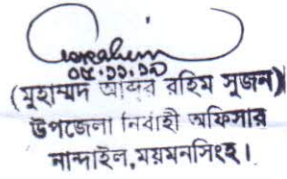 ০৫.১১.১৯
(মুহাম্মদ আব্দুর রহিম সুজন)
উপজেলা নির্বাহী অফিসার
নান্দাইল, ময়মনসিংহ।